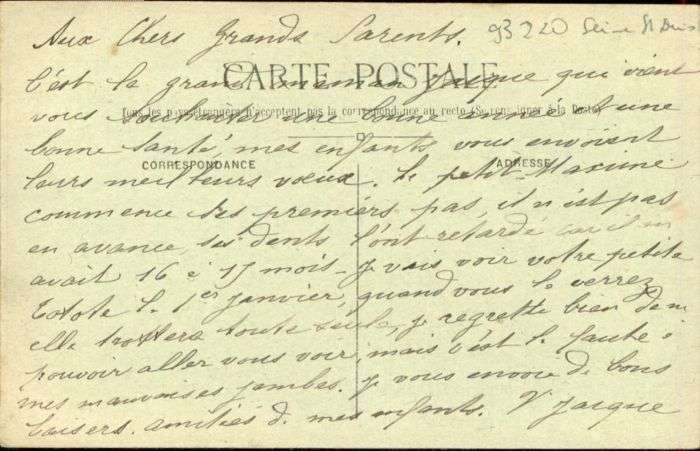 Aux Chers Grands Parents. 93220 Seine St Denis
CARTE POSTALE
c'est la grand maman Jacque qui vient
Tous les pays étrangers n'acceptent pas la correspondance au recto (Se renseigner à la Poste)
vous souhaiter une bonne année et une
bonne santé, mes enfants vous envoient
CORRESPONDANCE ADRESSE
leurs meilleurs vœux. Le petit Maxime
commence ses premiers pas, il n'est pas
en avance, ses dents l'ont retardé car il
avait 16 à 17 mois - je vais voir votre petite
Totote le 1er janvier, quand vous la verrez
elle trottera toute seule, je regrette bien de ne
pouvoir aller vous voir, mais c'est la faute à
mes mauvaises jambes. je vous envoie de bons
baisers. amitiés de mes enfants. V Jacque